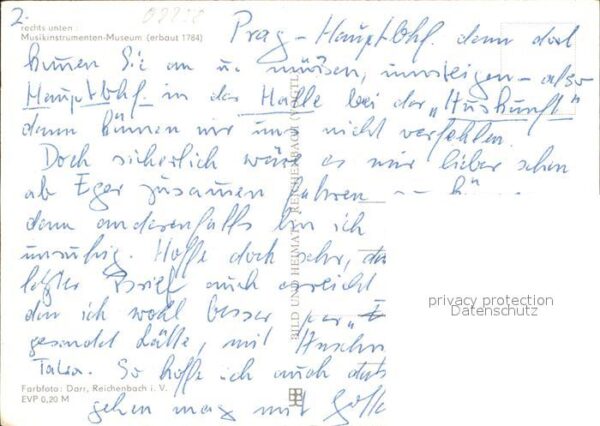 2.
rechts unten :
Musikinstrumenten-Museum (erbaut 1784)
Prag – Hauptbhf. denn dort
kommen Sie an u. müssen, umsteigen – also
Hauptbhf. in der Halle bei der „Auskunft"
dann können wir uns nicht verfehlen.
Doch sicherlich wäre es mir lieber schon
ab Eger zusammen fahren
denn anderenfalls bin ich
unruhig. Hoffe doch sehr, da
letzter Brief auch erreicht
den ich wohl besser per „E
gesandt hätte, mit
So hoffe ich auch daß
gehen mag mit Gott
BILD UND HEIMAT REICHENBACH
privacy protection
Datenschutz
Farbfoto: Darr, Reichenbach i. V.
EVP 0,20 M